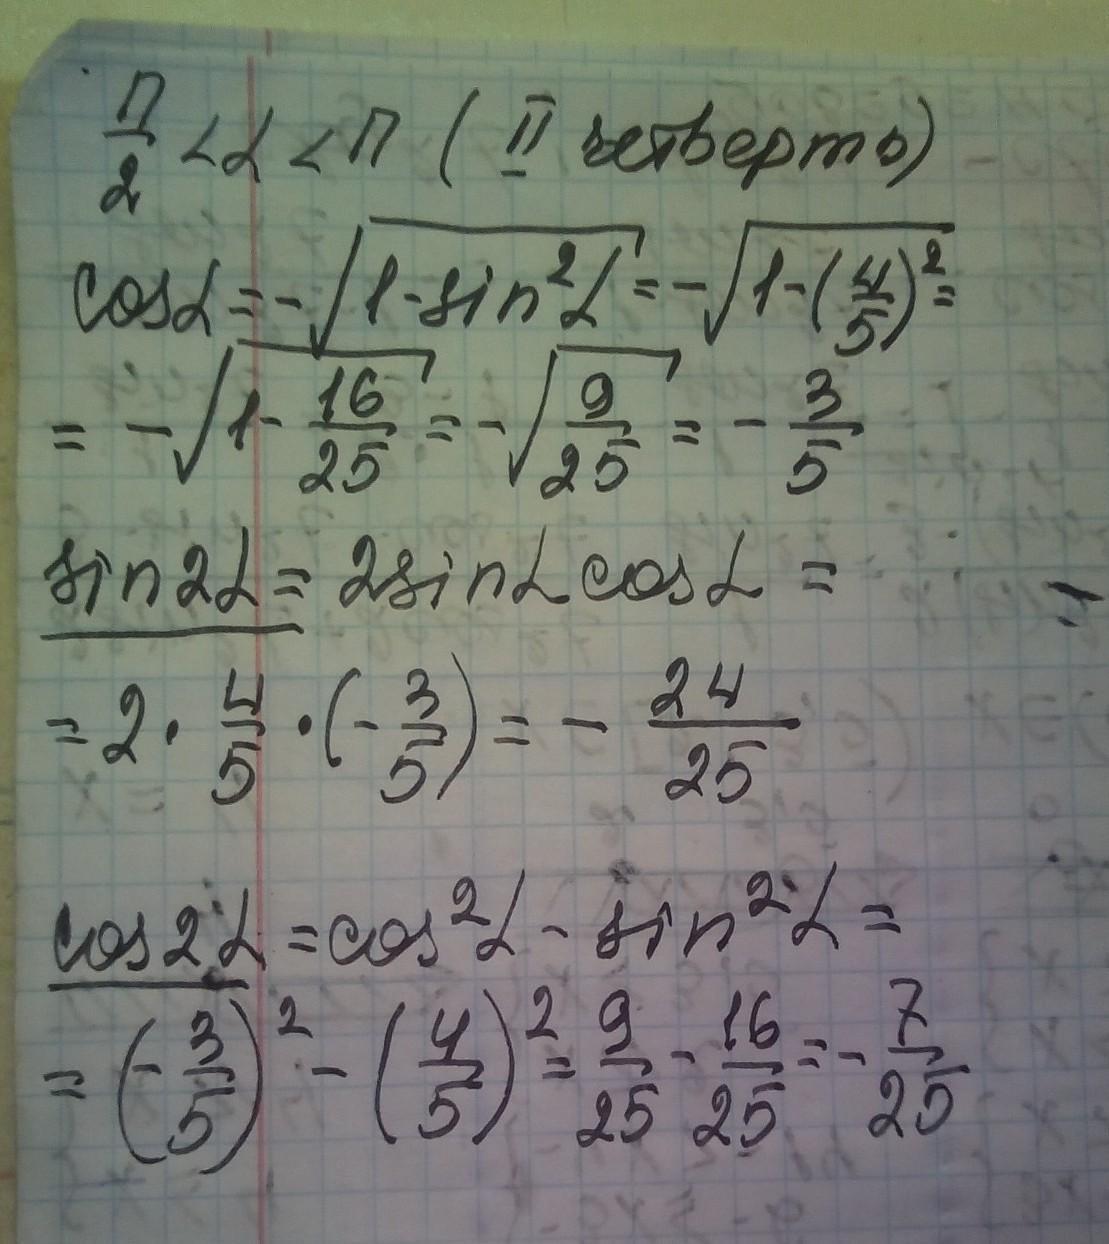 π/2 < α < π ( II четверть)
cosα = -√(1-sin²α) = -√(1-(4/5)²) =
= -√(1-16/25) = -√(9/25) = -3/5
sin2α = 2sinα cosα =
= 2 · 4/5 · (-3/5) = - 24/25
cos2α = cos²α - sin²α =
= (-3/5)² - (4/5)² = 9/25 - 16/25 = - 7/25